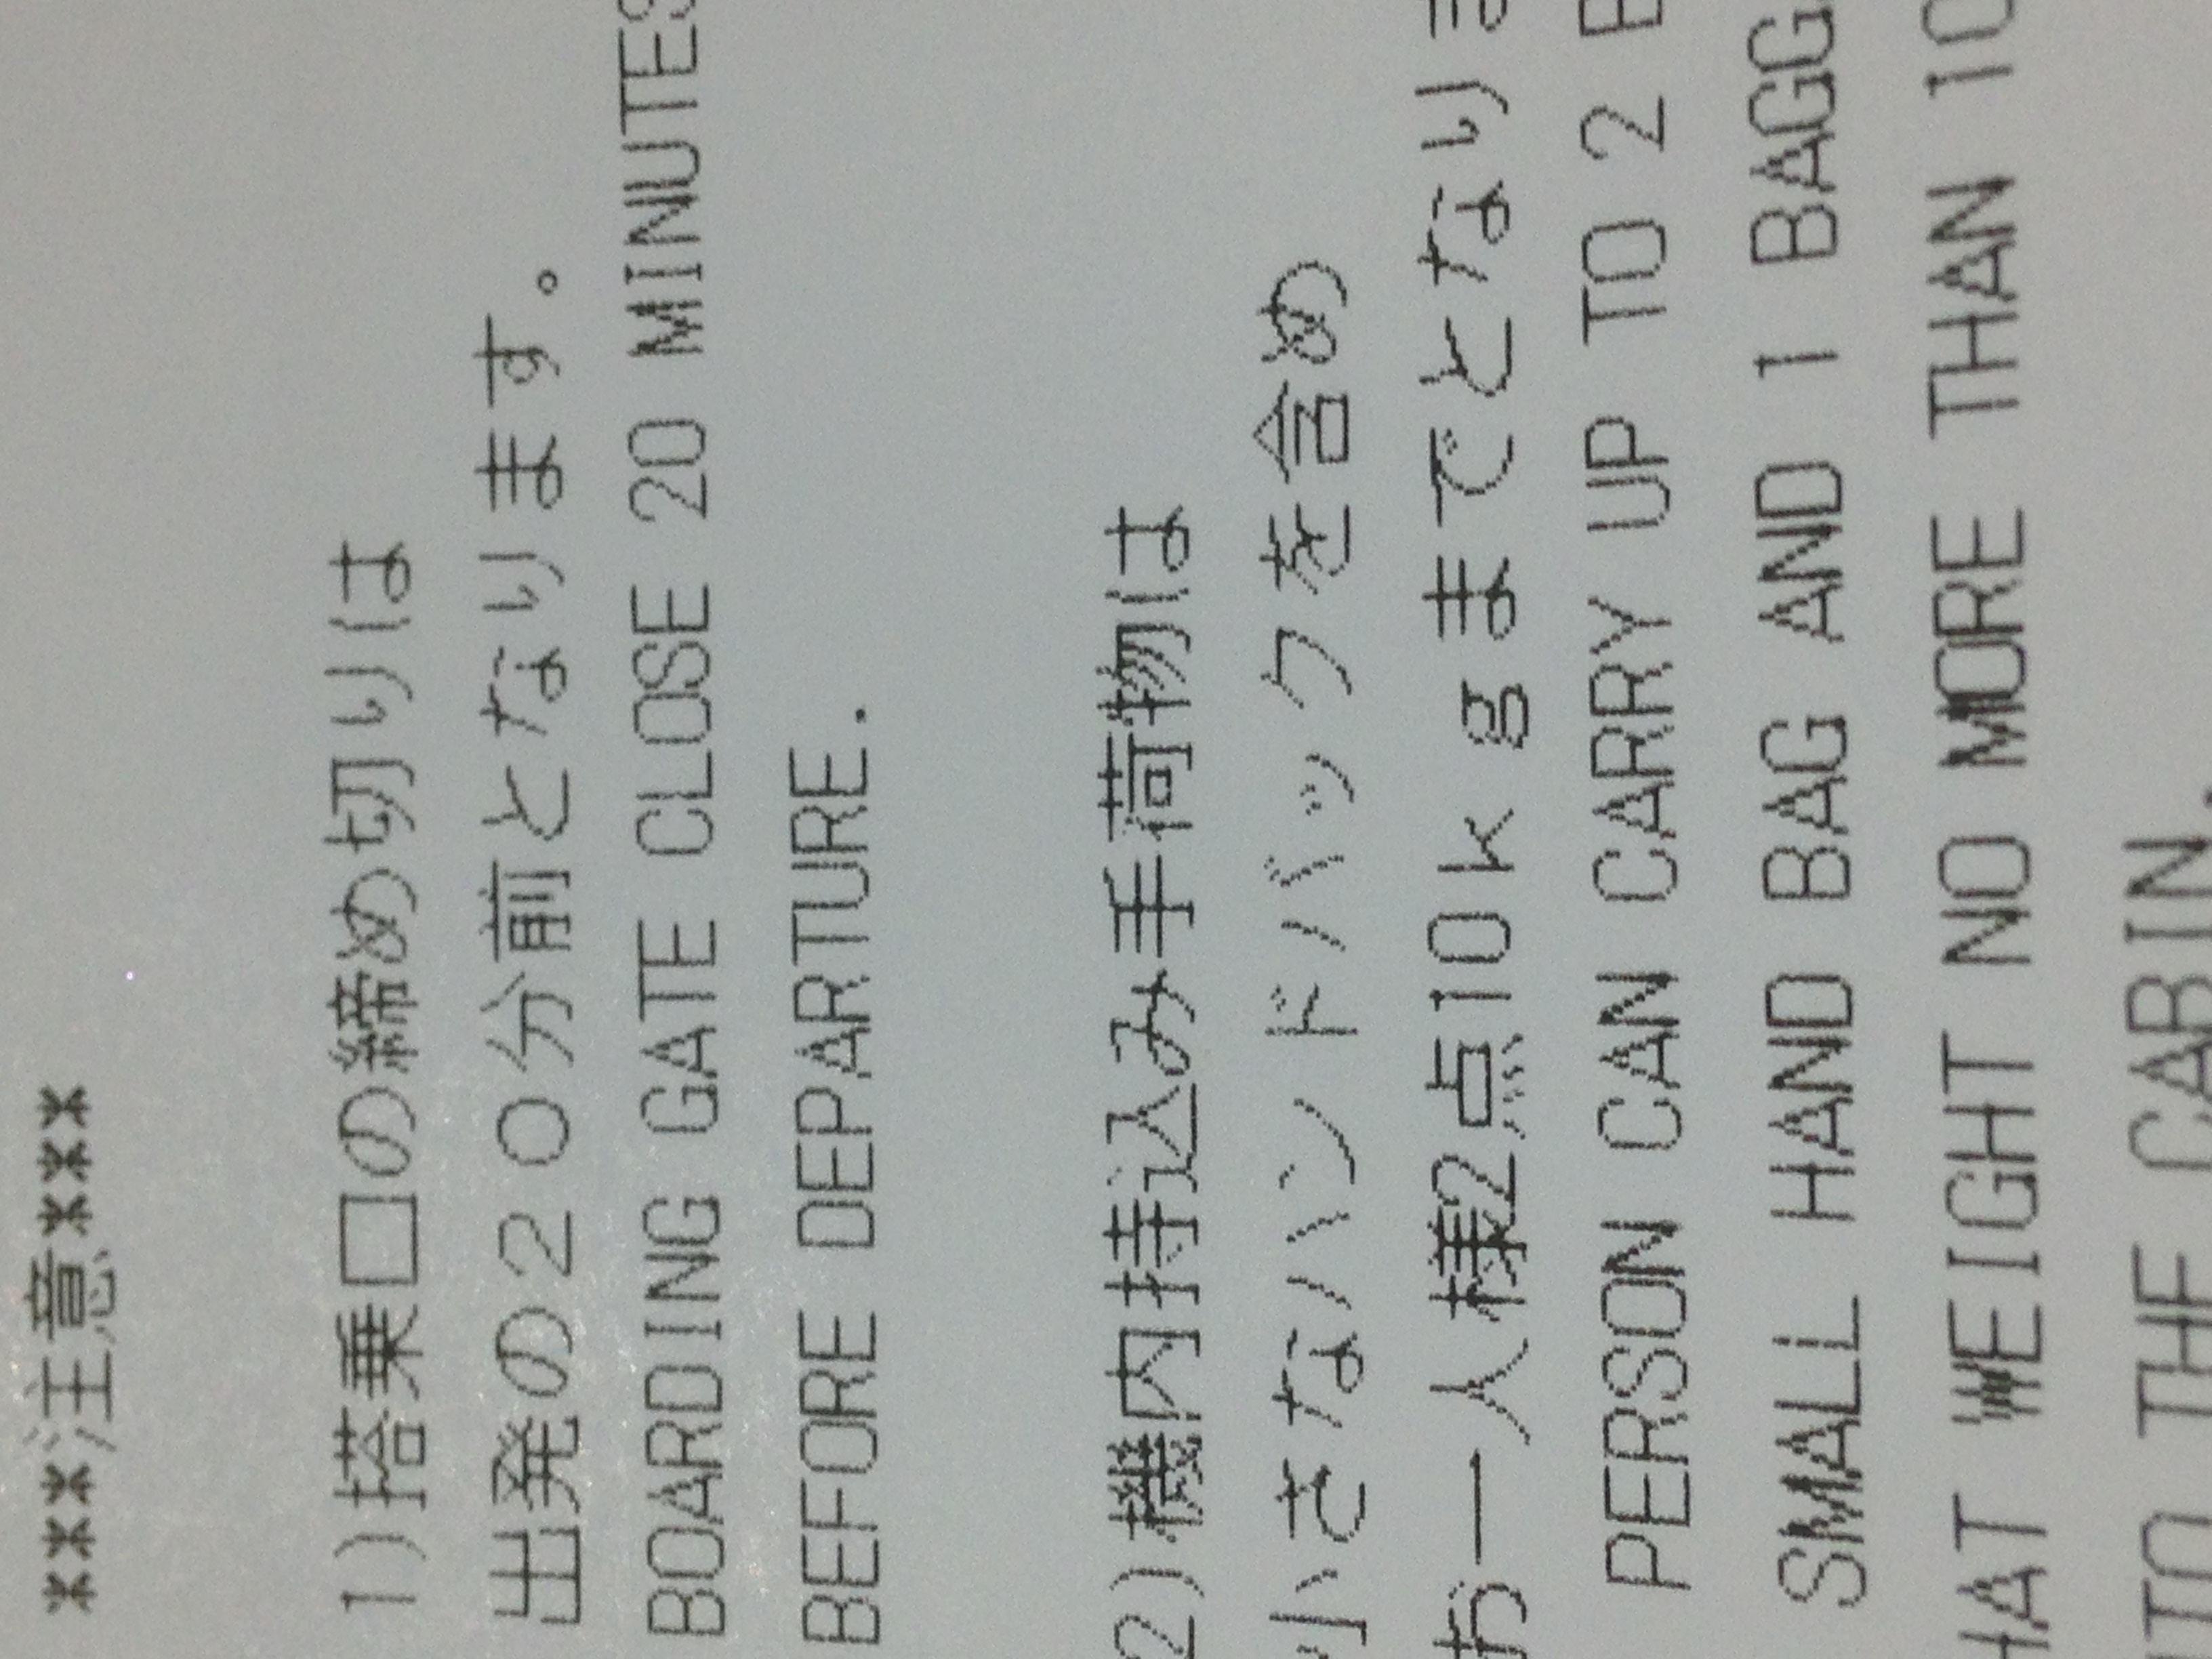 ***注意***
1)搭乗口の締め切りは
出発の20分前となります。
BOARDING GATE CLOSE 20 MINUTES
BEFORE DEPARTURE.
2)機内持込み手荷物は
小さなハンドバックを含め
お一人様2点10kgまでとなりま
PERSON CAN CARRY UP TO 2
SMALL HAND BAG AND 1
NO MORE THAN 10
THE CABIN.